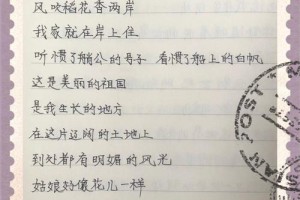 风吹稻花香两岸
我家就在岸上住
听惯了艄公的号子 看惯了船上的白帆
这是美丽的祖国
是我生长的地方
在这片辽阔的土地上
到处都有明媚的风光
姑娘好像花儿一样